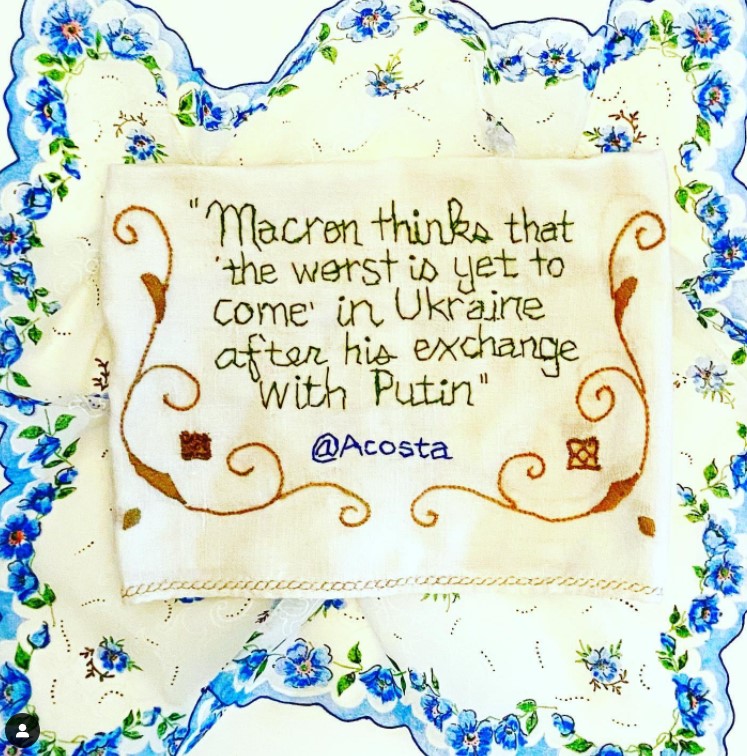 "Macron thinks that
'the worst is yet to
come' in Ukraine
after his exchange
with Putin"
@Acosta